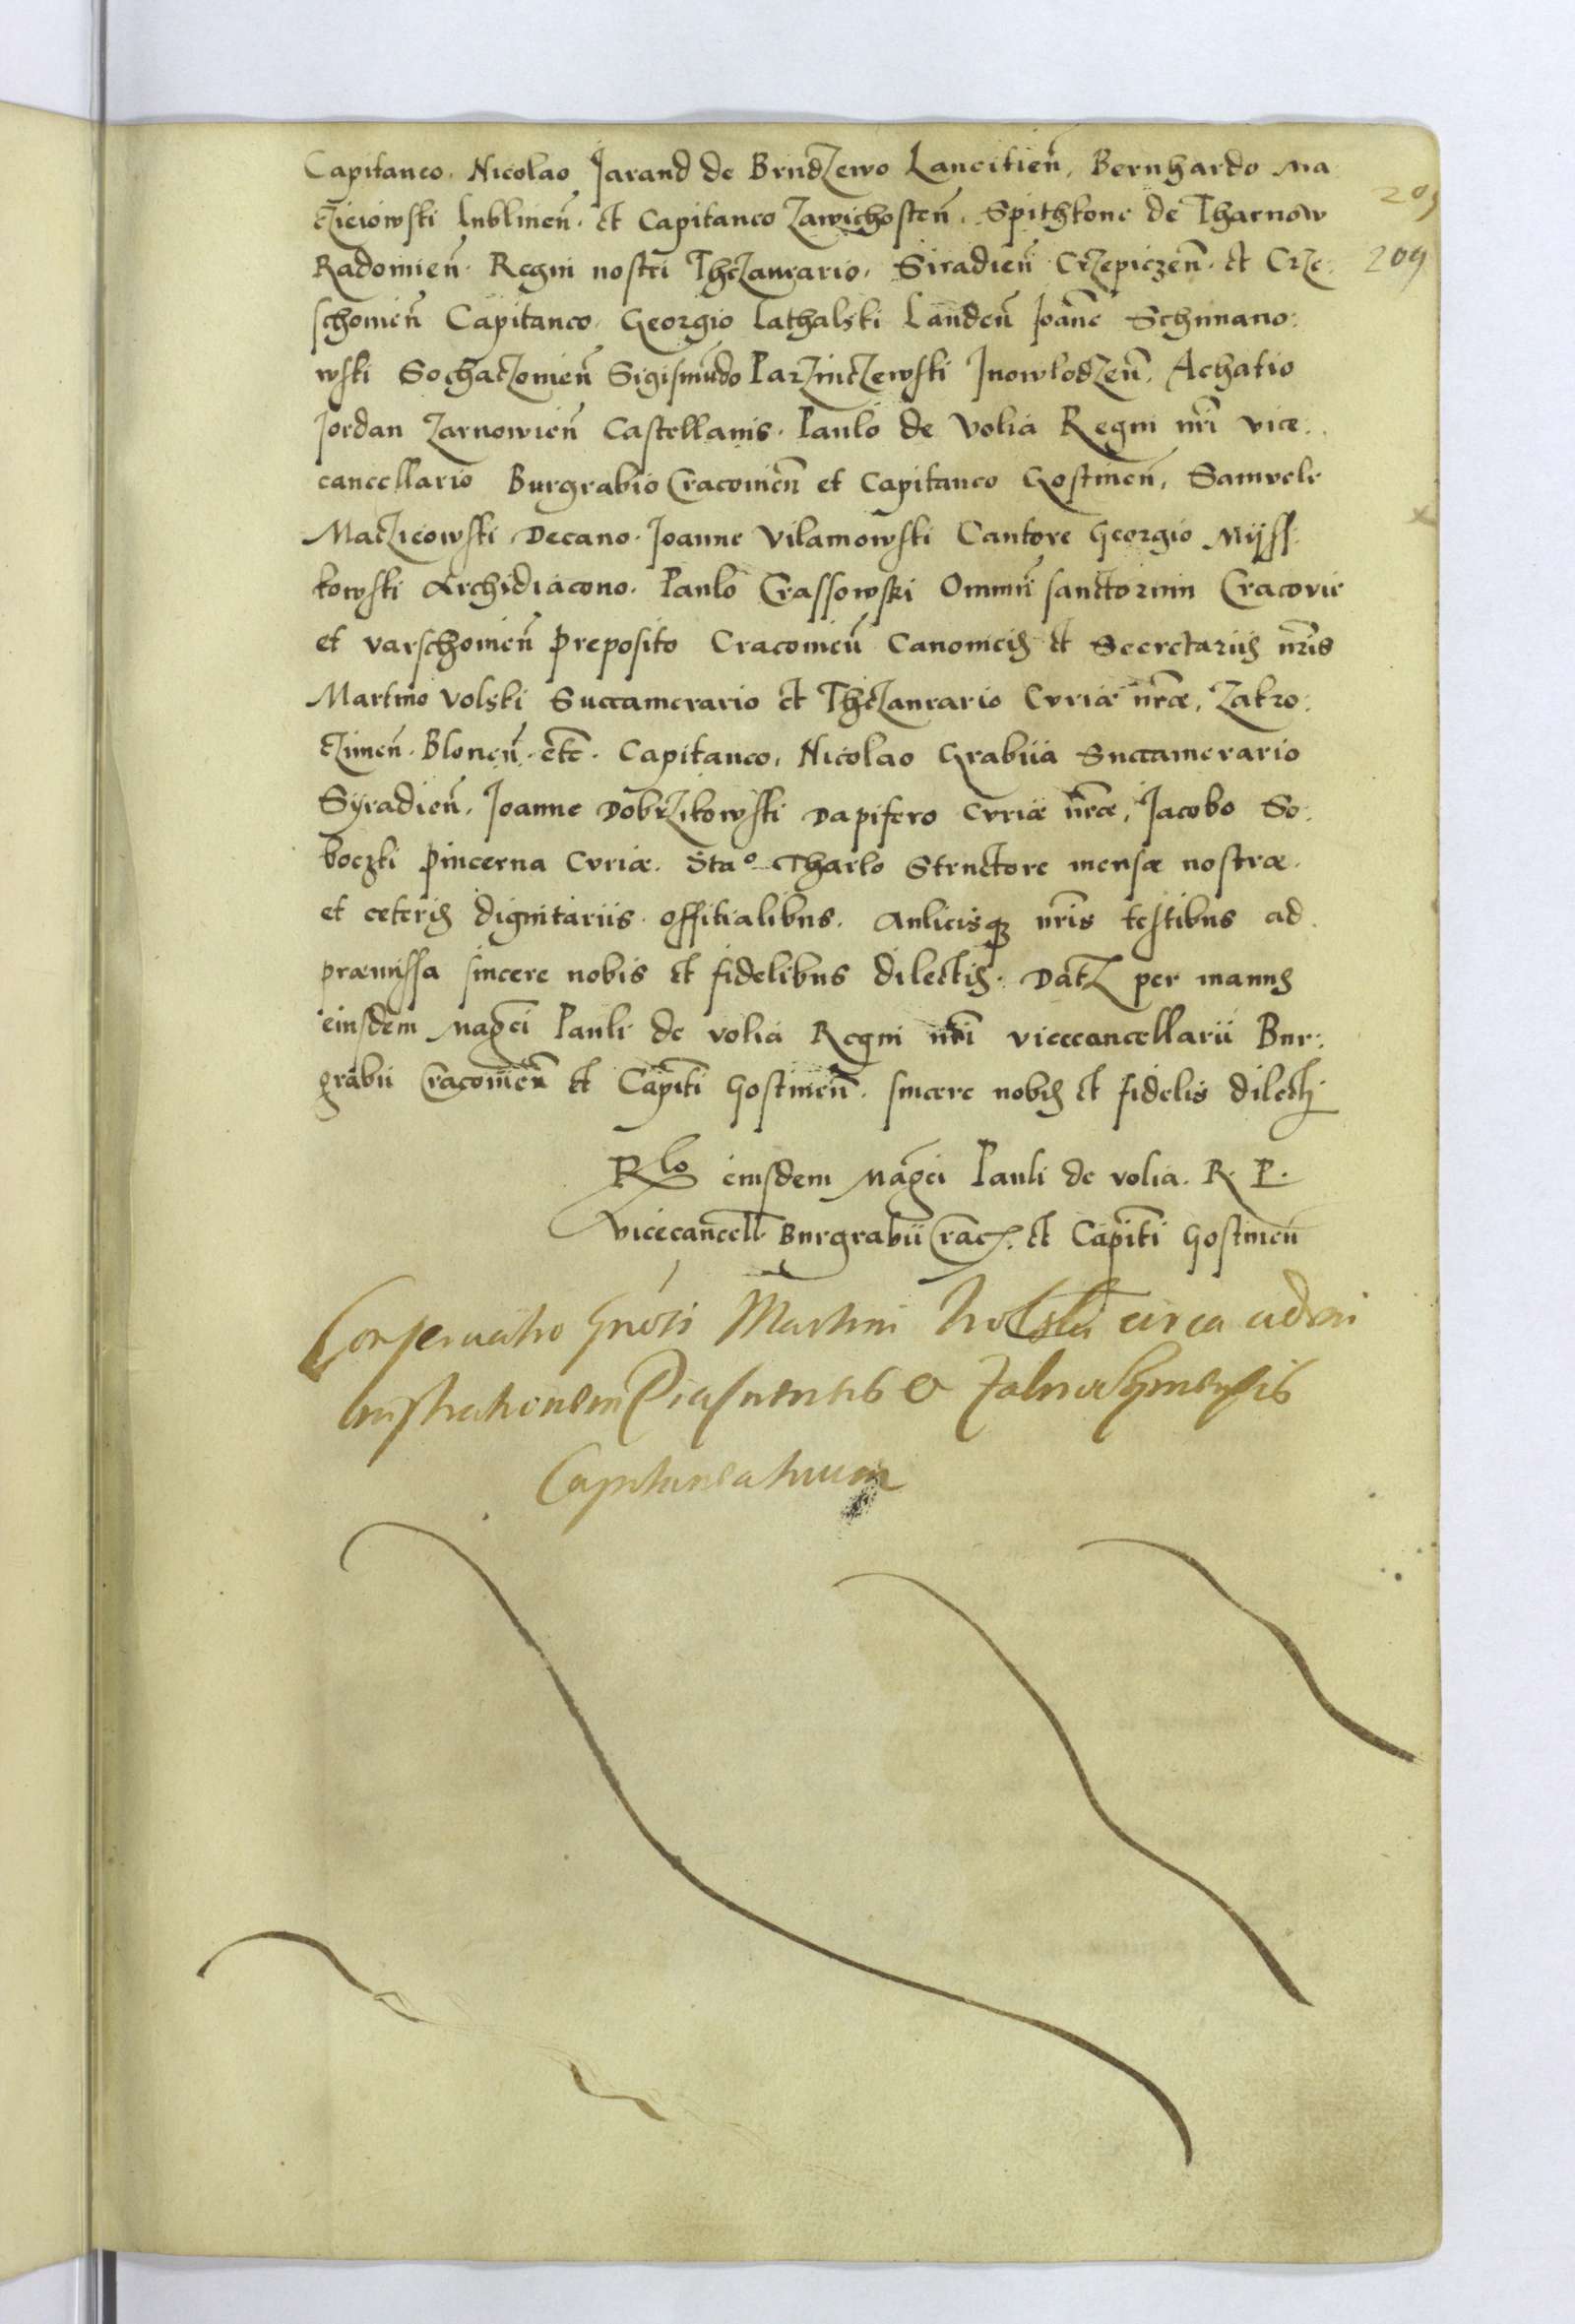 Capitaneo. Nicolao Jarand de Brudzewo Lancitień, Bernhardo Ma
cziciowski lublineń. et Capitaneo Zawichosteń. Spithkone de Tharnow
209
Radomień. Regni nostri Thezaurario, Siradień Crzepiczeń. et Crze:
209
schouień Capitaneo. Georgio Lathalski Landeń Joāne Schimano:
wski Sochaczouień Sigismūdo Parzniczewski Jnowlodzeń, Achatio
Jordan Zarnowień Castellanis. Paulo de Volia Regni nr̄i vice.
cancellario Burgrabio Cracouień et Capitaneo Gostineń, Samvele
Maczieowski Decano. Joanne Vilamowski Cantore Georgio Mÿss:
kowski Archidiacono. Paulo Crassowski Omniū sanctorum Cracovie
et varschouień preposito Cracouień Canonicis et Secretariis nr̄is
Martino Volski Succamerario et Theczaurario Cvriæ nr̄æ, Zakro:
czimeń. Bloneń. etc. Capitaneo, Nicolao Grabiia Succamerario
Sÿradień. Joanne Dobrzikowski Dapifero Cvriæ nr̄æ, Jacobo So:
boczki pincerna Cvriæ. Stao Tharlo Structore mensæ nostræ.
et ceteris dignitariis. offitialibus. Aulicisq3 nr̄is testibus ad
præmissa sincere nobis et fidelibus dilectis. Datz per manus
eiusdem Magci Pauli de volia Regni nr̄i vicecancellarii Bur:
grabii Cracouień et Capiti Gostineń. sincere nobis et fidelis dilecti
Rlo eiusdem Magci Pauli de volia. R. P.
vicecancell. Burgrabii Crac. et Capiti Gostineń
Conservatio Gnosi Martini Wolski circa admi
nistrationem Piasnensis et Zakroczymensis
Capitaneatuum